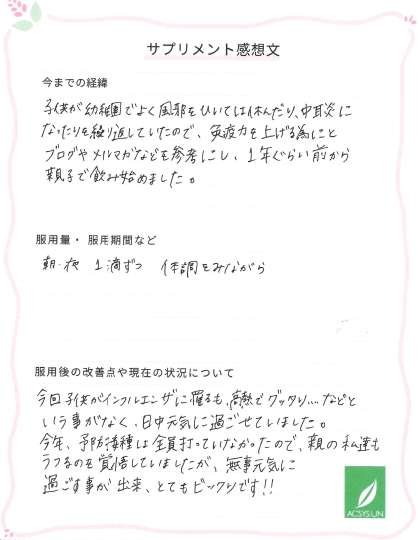 サプリメント感想文
今までの経緯
子供が幼稚園でよく風邪をひいては休んだり、中耳炎に
なったりを繰り返していたので、免疫力を上げる為にと
ブログやメルマガなどを参考にし、1年ぐらい前から
親子で飲み始めました。
服用量・服用期間など
朝・夜 1滴ずつ 体調をみながら
服用後の改善点や現在の状況について
今回子供がインフルエンザに罹るも、高熱でグッタリ...などと
いう事がなく、日中元気に過ごせていました。
今年、予防接種は全員打っていなかったので、親の私達も
うつるのを覚悟していましたが、無事元気に
過ごす事が出来、とてもビックリです!!
ACSYSLIN